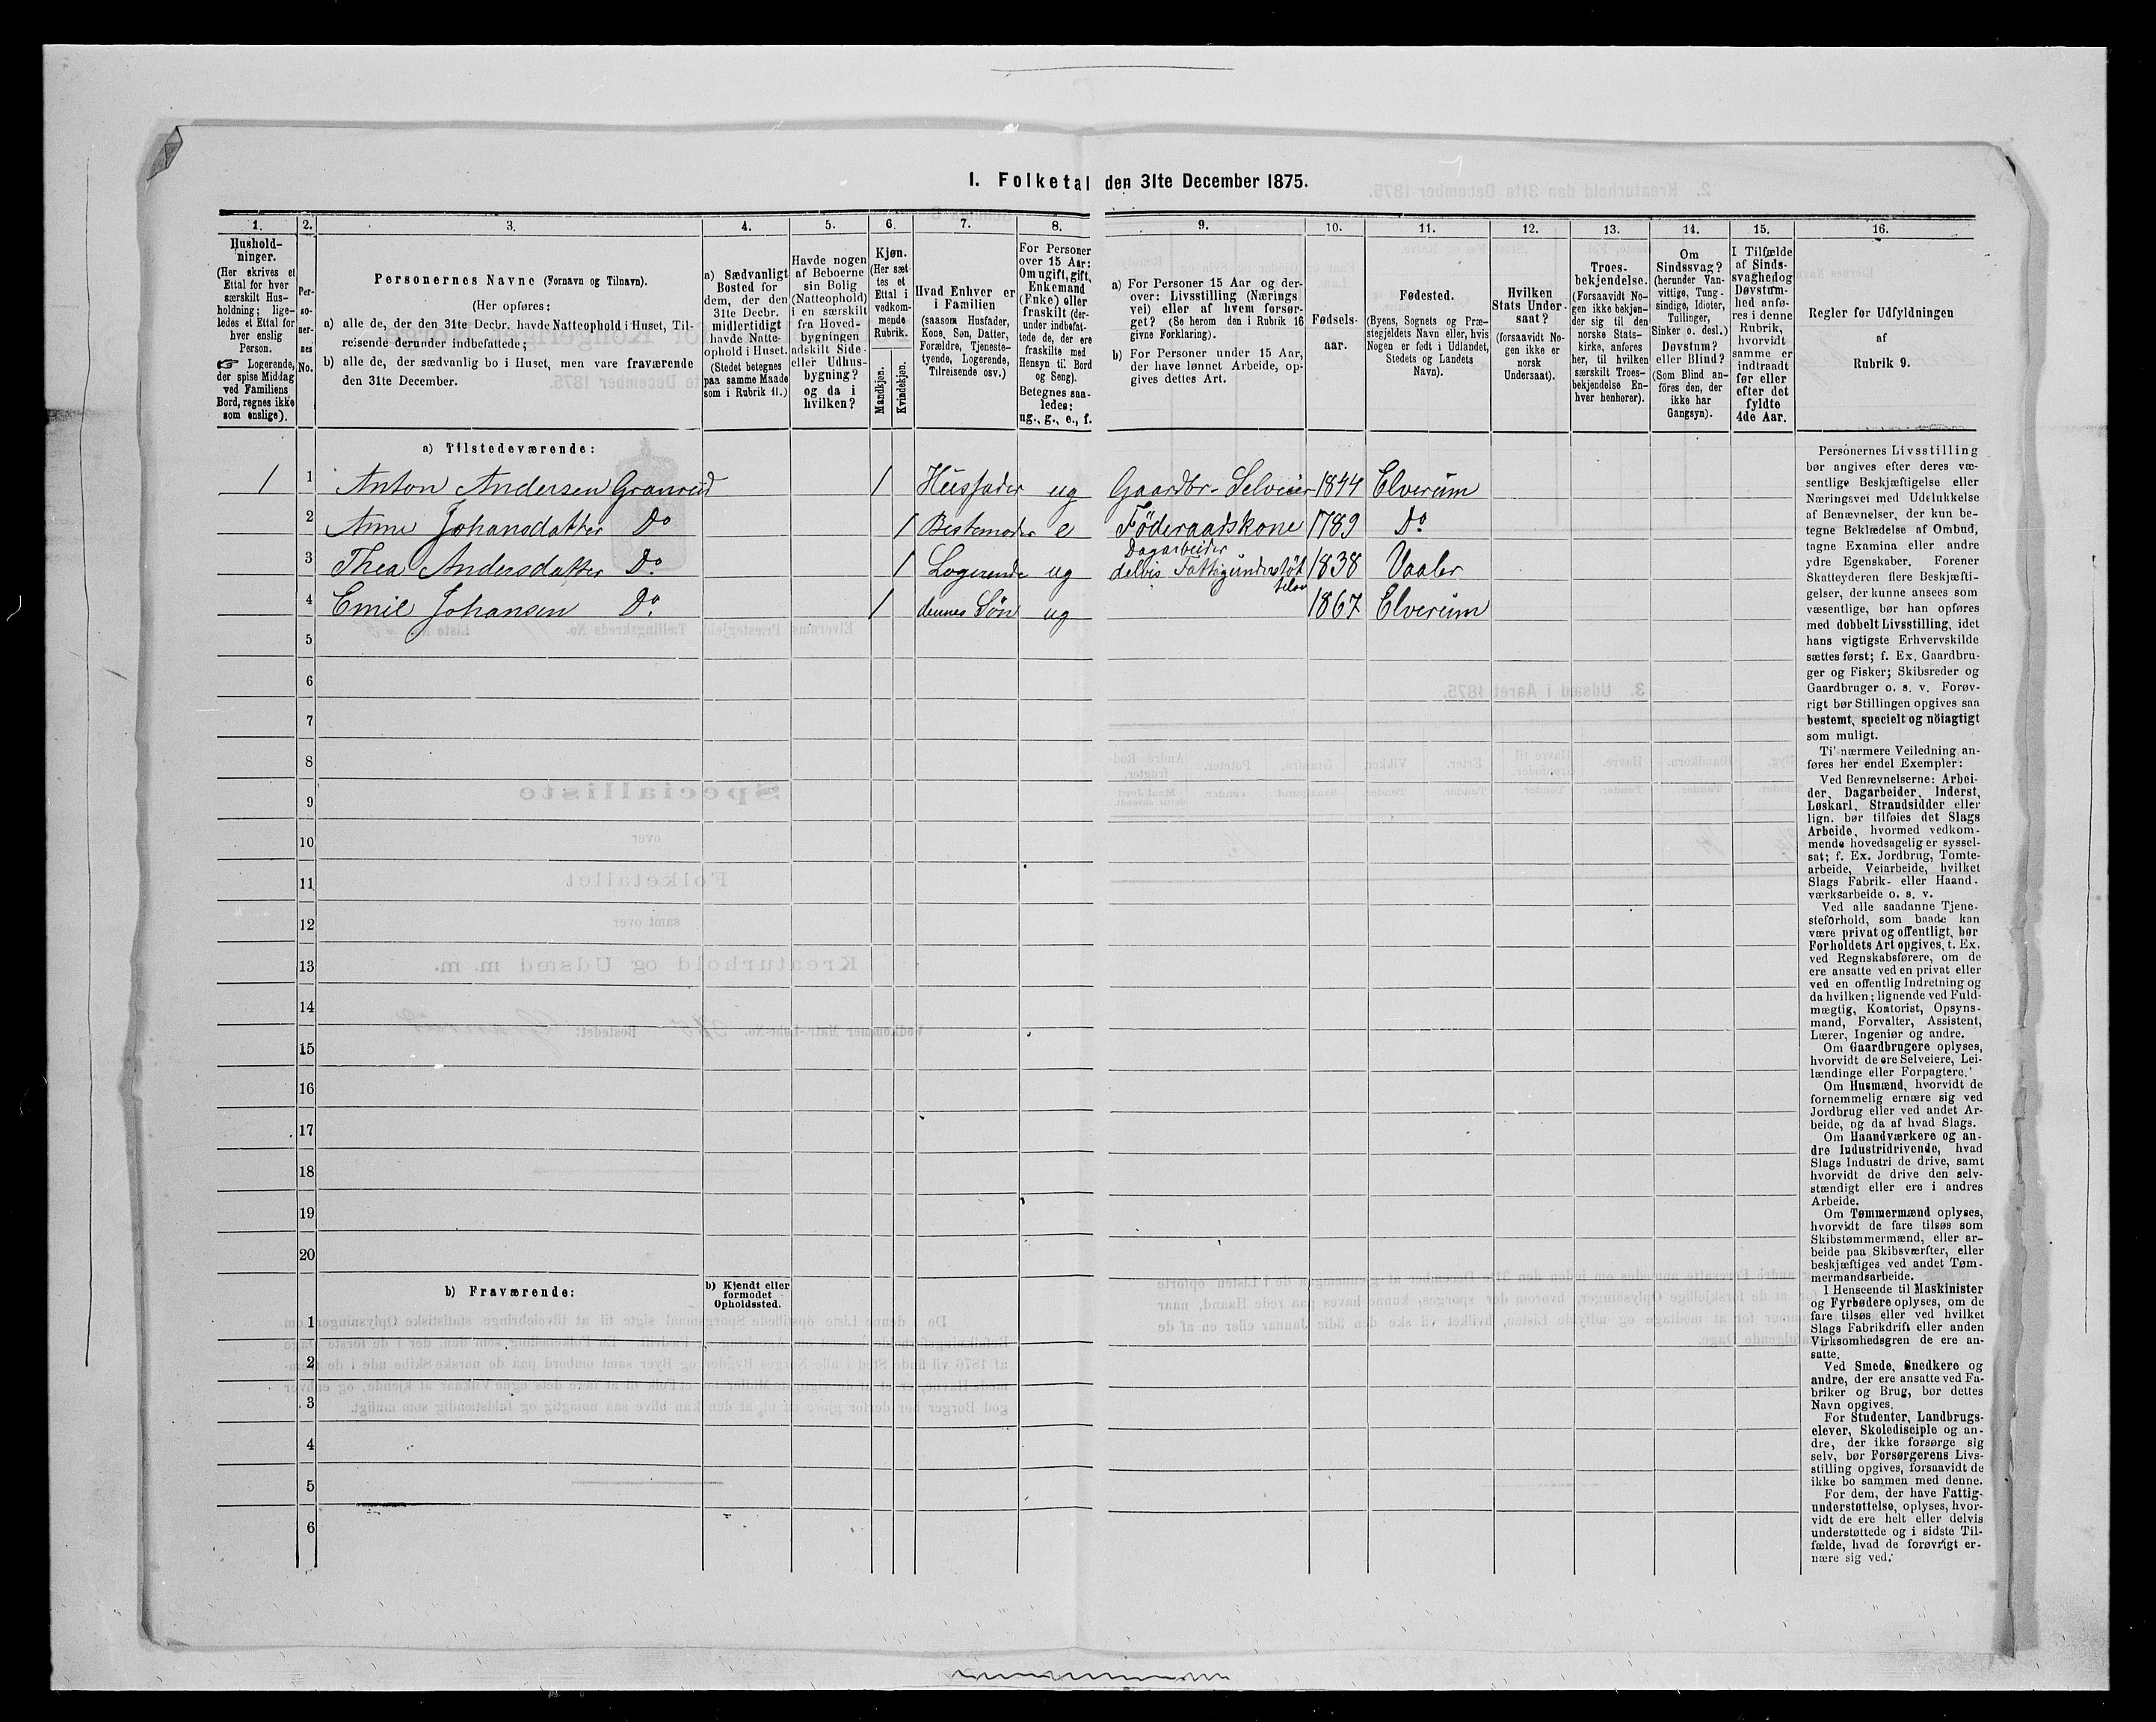 1. Folketal den 31te December 1875.
1.
Hushold-
ninger.
(Her skrives et
Ettal for hver
særskilt Hus-
holdning; lige-
ledes et Ettal for
hver enslig
Person.
☞ Logerende,
der spise Middag
ved Familiens
Bord, regnes ikke
som enslige).
2.
Per-
so-
ner-
nes
No.
3.
Personernes Navne (Fornavn og Tilnavn).
(Her opføres:
a) alle de, der den 31te Decbr. havde Natteophold i Huset, Til-
reisende derunder indbefattede;
b) alle de, der sædvanlig bo i Huset, men vare fraværende
den 31te December.
4.
a) Sædvanligt
Bosted for
dem, der den
31te Decbr.
midlertidigt
havde Natte-
ophold i Huset.
(Stedet betegnes
paa samme Maade
som i Rubrik 11.)
5.
Havde nogen
af Beboerne
sin Bolig
(Natteophold)
i en særskilt
fra Hoved-
bygningen
adskilt Side-
eller Udhus-
bygning?
og da i
hvilken?
6.
Kjøn.
(Her sæt-
tes et
Ettal i
vedkom-
mende
Rubrik.
Mandkjøn.
Kvindekjøn.
7.
Hvad Enhver er
i Familien
(saasom Husfader,
Kone, Søn, Datter,
Forældre, Tjeneste-
tyende, Logerende,
Tilreisende osv.)
8.
For Personer
over 15 Aar:
Om ugift, gift,
Enkemand
(Enke) eller
fraskilt (der-
under indbefat-
tede de, der ere
fraskilte med
Hensyn til Bord
og Seng).
Betegnes saa-
ledes:
ug., g., e., f.
9.
a) For Personer 15 Aar og der-
over: Livsstilling (Nærings
vei) eller af hvem forsør-
get? (Se herom den i Rubrik 16
givne Forklaring).
b) For Personer under 15 Aar,
der have lønnet Arbeide, op-
gives dettes Art.
10.
Fødsels-
aar.
11.
Fødested.
(Byens, Sognets og Præ-
stegjeldets Navn eller, hvis
Nogen er født i Udlandet,
Stedets og Landets
Navn).
12.
Hvilken
Stats Under-
saat?
(forsaavidt No-
gen ikke er
norsk
Undersaat).
13.
Troes-
bekjendelse.
(Forsaavidt No-
gen ikke bekjen-
der sig til den
norske Stats-
kirke, anføres
her, til hvilken
særskilt Troes-
bekjendelse En-
hver henhører).
14.
Om
Sindssvag?
(herunder Van-
vittige, Tung-
sindige, Idioter,
Tullinger,
Sinker o. desl.)
Døvstum?
eller Blind?
(Som Blind an-
føres den, der
ikke har
Gangsyn).
15.
I Tilfælde
af Sinds-
svaghed og
Døvstum-
hed anfø-
res i denne
Rubrik,
hvorvidt
samme er
indtraadt
før eller
efter det
fyldte
4de Aar.
16.
Regler for Udfyldningen
af
Rubrik 9.
a) Tilstedeværende:
1 1 Anton Andersen Granrud 1 Husfader ug Gaardbr. Selveier 1844 Elverum
2 Anne Johansdatter Do 1 Bestemoder e Föderaadskone 1789 Do
3 Thea Andersdatter Do 1 Logerende ug Dagarbeider delvis Fattigunderstöt telse 1838 Vaaler
4 Emil Johansen Do 1 dennes Sön ug 1867 Elverum
5
6
7
8
9
10
11
12
13
14
15
16
17
18
19
20
b) Fraværende:
b) Kjendt eller
formodet
Opholdssted.
1
2
3
4
5
6
Personernes Livsstilling
bør angives efter deres væ-
sentlige Beskjæftigelse eller
Næringsvei med Udelukkelse
af Benævnelser, der kun be-
tegne Beklædelse af Ombud,
tagne Examina eller andre
ydre Egenskaber. Forener
Skatteyderen flere Beskjæfti-
gelser, der kunne ansees som
væsentlige, bør han opføres
med dobbelt Livsstilling, idet
hans vigtigste Erhvervskilde
sættes først; f. Ex. Gaardbru-
ger og Fisker; Skibsreder og
Gaardbruger o. s. v. Forøv-
rigt bør Stillingen opgives saa
bestemt, specielt og nöiagtigt
som muligt.
Til nærmere Veiledning an-
føres her endel Exempler:
Ved Benævnelserne: Arbei-
der, Dagarbeider, Inderst,
Løskarl, Strandsidder eller
lign. bør tilføies det Slags
Arbeide, hvormed vedkom-
mende hovedsagelig er syssel-
sat; f. Ex. Jordbrug, Tomte-
arbeide, Veiarbeide, hvilket
Slags Fabrik- eller Haand-
værksarbeide o. s. v.
Ved alle saadanne Tjene-
steforhold, som baade kan
være privat og offentligt, bør
Forholdets Art opgives, t. Ex.
ved Regnskabsførere, om de
ere ansatte ved en privat eller
ved en offentlig Indretning og
da hvilken; lignende ved Fuld-
mægtig, Kontorist, Opsyns-
mand, Forvalter, Assistent,
Lærer, Ingeniør og andre.
Om Gaardbrugere oplyses,
hvorvidt de ere Selveiere, Lei-
lændinge eller Forpagtere.
Om Husmænd, hvorvidt de
fornemmelig ernære sig ved
Jordbrug eller ved andet Ar-
beide, og da af hvad Slags.
Om Haandværkere og an-
dre Industridrivende, hvad
Slags Industri de drive, samt
hvorvidt de drive den selv-
stændigt eller ere i andres
Arbeide.
Om Tømmermænd oplyses,
hvorvidt de fare tilsøs som
Skibstømmermænd, eller ar-
beide paa Skibsværfter, eller
beskjæftiges ved andet Tøm-
mermandsarbeide.
I Henseende til Maskinister
og Fyrbødere oplyses, om de
fare tilsøs eller ved hvilket
Slags Fabrikdrift eller anden
Virksomhedsgren de ere an-
satte.
Ved Smede, Snedkere og
andre, der ere ansatte ved Fa-
briker og Brug, bør dettes
Navn opgives.
For Studenter, Landbrugs-
elever, Skoledisciple og an-
dre, der ikke forsørge sig
selv, bør Forsørgerens Livs-
stilling opgives, forsaavidt de
ikke bo sammen med denne.
For dem, der have Fattig-
understøttelse, oplyses, hvor-
vidt de ere helt eller delvis
understøttede og i sidste Til-
fælde, hvad de forøvrigt er-
nære sig ved.